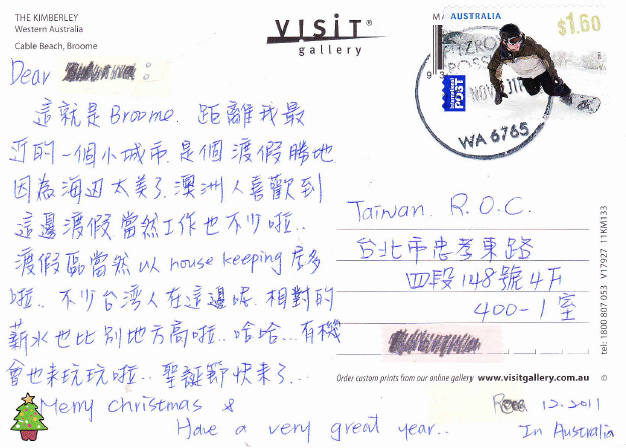 THE KIMBERLEY
Western Australia
Cable Beach, Broome
VISIT®
gallery
AUSTRALIA
$1.60
International POST
FITZROY
NOV 2011
WA 6765
Dear :
這就是Broome. 距離我最
近的一個小城市. 是個渡假勝地
因為海边太美了. 澳洲人喜歡到
這邊渡假. 當然工作也不少啦..
渡假區當然以 house keeping 居多
啦.. 不少台湾人在這邊呢. 相對的
薪水也比別地方高啦.. 哈哈...有機
會也來玩玩啦.. 聖誕節快來了...
Merry Christmas &
Have a very great year..
Taiwan. R.O.C.
台北市忠孝東路
四段148號4F
400-1室
tel: 1800 807 053 V17927 11KM133
Order custom prints from our online gallery www.visitgallery.com.au ©
12.2011
In Australia